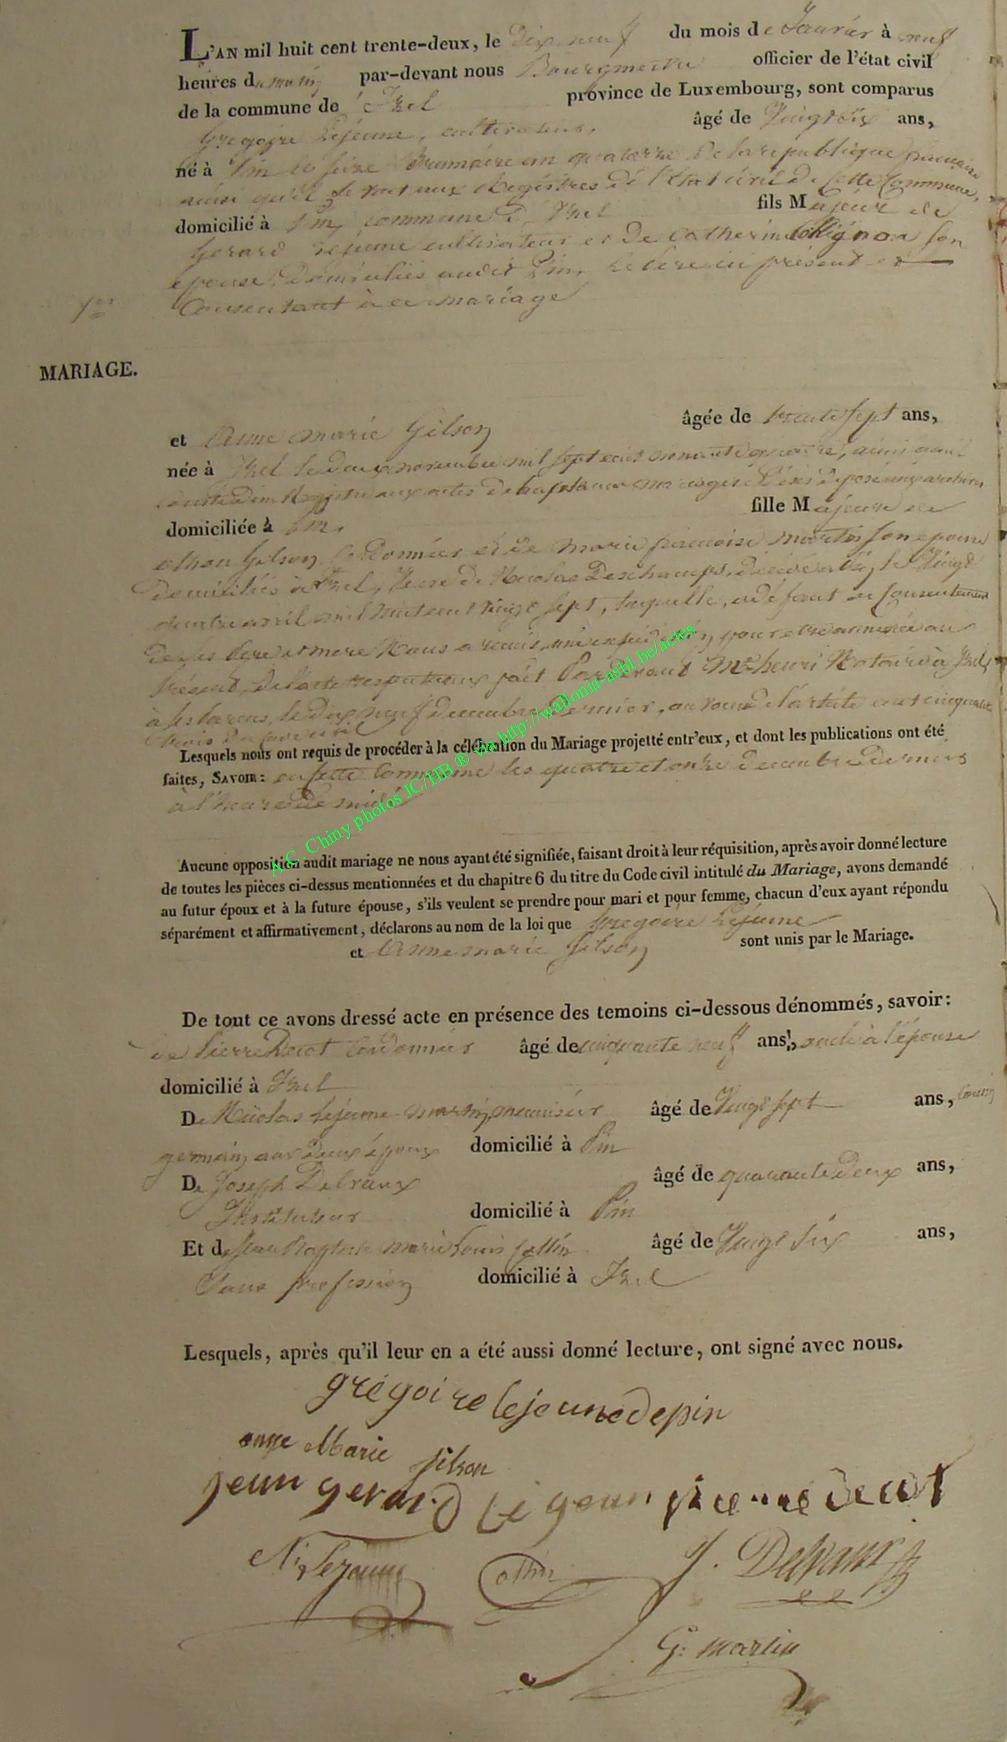 L'AN mil huit cent trente-deux, le Dix neuf du mois de Janvier à neuf
heures du matin par-devant nous Bourgmestre officier de l'état civil
de la commune de Izel province de Luxembourg, sont comparus
Gregoire Lejeune, cultivateur, âgé de Vingt six ans,
né à Pin le seize Brumaire an quatorze de la republique
ainsi qu'il se voit aux Registres de l'Etat civil de cette Commune,
domicilié à Pin, commune d'Izel fils Majeur de
Gerard Lejeune cultivateur et de Catherine Collignon son
epouse, Domiciliés audit Pin, le Pere ici present et
Consentant à ce mariage
1er
MARIAGE.
et Anne marie Gilson âgée de trente sept ans,
née à Izel le deux novembre mil sept cent nonante quatre, ainsi
domiciliée à Pin, fille Majeure de
Gilson, Cordonnier et de marie francoise son epouse
Domiciliés à Izel, Veuve de Nicolas Deschamps, décédé le Vingt
avril mil huit cent vingt sept, laquelle, a défaut de Consentement
de ses Pere et mere Nous a remis une pour etre annexée au
present, de l'acte respectueux fait Pardevant Me henri Notaire à Izel,
le dix neuf decembre Dernier, cent cinquante
trois du code civil
Lesquels nous ont requis de procéder à la célébration du Mariage projetté entr'eux, et dont les publications ont été
faites, SAVOIR: en cette Commune les quatre et onze decembre Derniers
à l'heure de midi
A.C. Chiny photos JC/HB ® via http://wallonia-asbl.be/actes
Aucune opposition audit mariage ne nous ayant été signifiée, faisant droit à leur réquisition, après avoir donné lecture
de toutes les pièces ci-dessus mentionnées et du chapitre 6 du titre du Code civil intitulé du Mariage, avons demandé
au futur époux et à la future épouse, s'ils veulent se prendre pour mari et pour femme, chacun d'eux ayant répondu
séparément et affirmativement, déclarons au nom de la loi que Gregoire Lejeune
et Anne marie Gilson sont unis par le Mariage.
De tout ce avons dressé acte en présence des temoins ci-dessous dénommés, savoir:
de Pierre Decot Cordonnier âgé de cinquante neuf ans, oncle à l'épouse
domicilié à Izel
De Nicolas Lejeune meunier âgé de Vingt sept ans, Cousin
germain aux deux époux domicilié à Pin
De Joseph Delvaux âgé de quarante deux ans,
Instituteur domicilié à Pin
Et de Jean Baptiste marie Louis Collin âgé de Vingt six ans,
Sans profession domicilié à Izel
Lesquels, après qu'il leur en a été aussi donné lecture, ont signé avec nous.
grégoire lejeune de pin
anne Marie gilson
jean gerard Le jeun pierre decot
N. Lejeune Collin J. Delvaux
G. martin